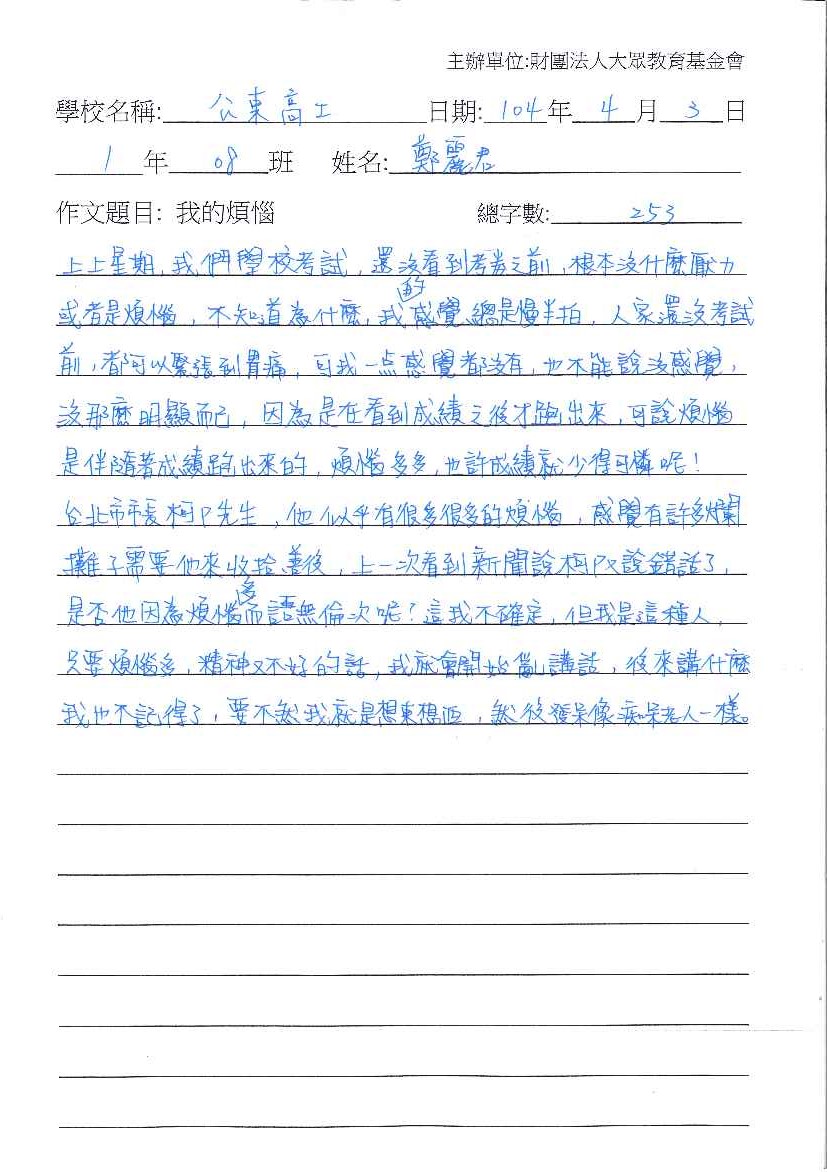 主辦單位:財團法人大眾教育基金會
學校名稱: 公東高工 日期: 104 年 4 月 3 日
1 年 08 班 姓名: 鄭麗君
作文題目: 我的煩惱 總字數: 253
上上星期,我們學校考試,還沒看到考卷之前,根本沒什麼壓力
或者是煩惱,不知道為什麼,我的感覺總是慢半拍,人家還沒考試
前,都可以緊張到胃痛,可我一點感覺都沒有,也不能說沒感覺,
沒那麼明顯而已,因為是在看到成績之後才跑出來,可說煩惱
是伴隨著成績跑出來的,煩惱多多,也許成績就少得可憐呢!
台北市市長柯P先生,他似乎有很多很多的煩惱,感覺有許多爛
攤子需要他來收拾善後,上一次看到新聞說柯P又說錯話了,
是否他因為煩惱多而語無倫次呢?這我不確定,但我是這種人,
只要煩惱多,精神又不好的話,我就會開始亂講話,後來講什麼
我也不記得了,要不然我就是想東想西,然後發呆像痴呆老人一樣。